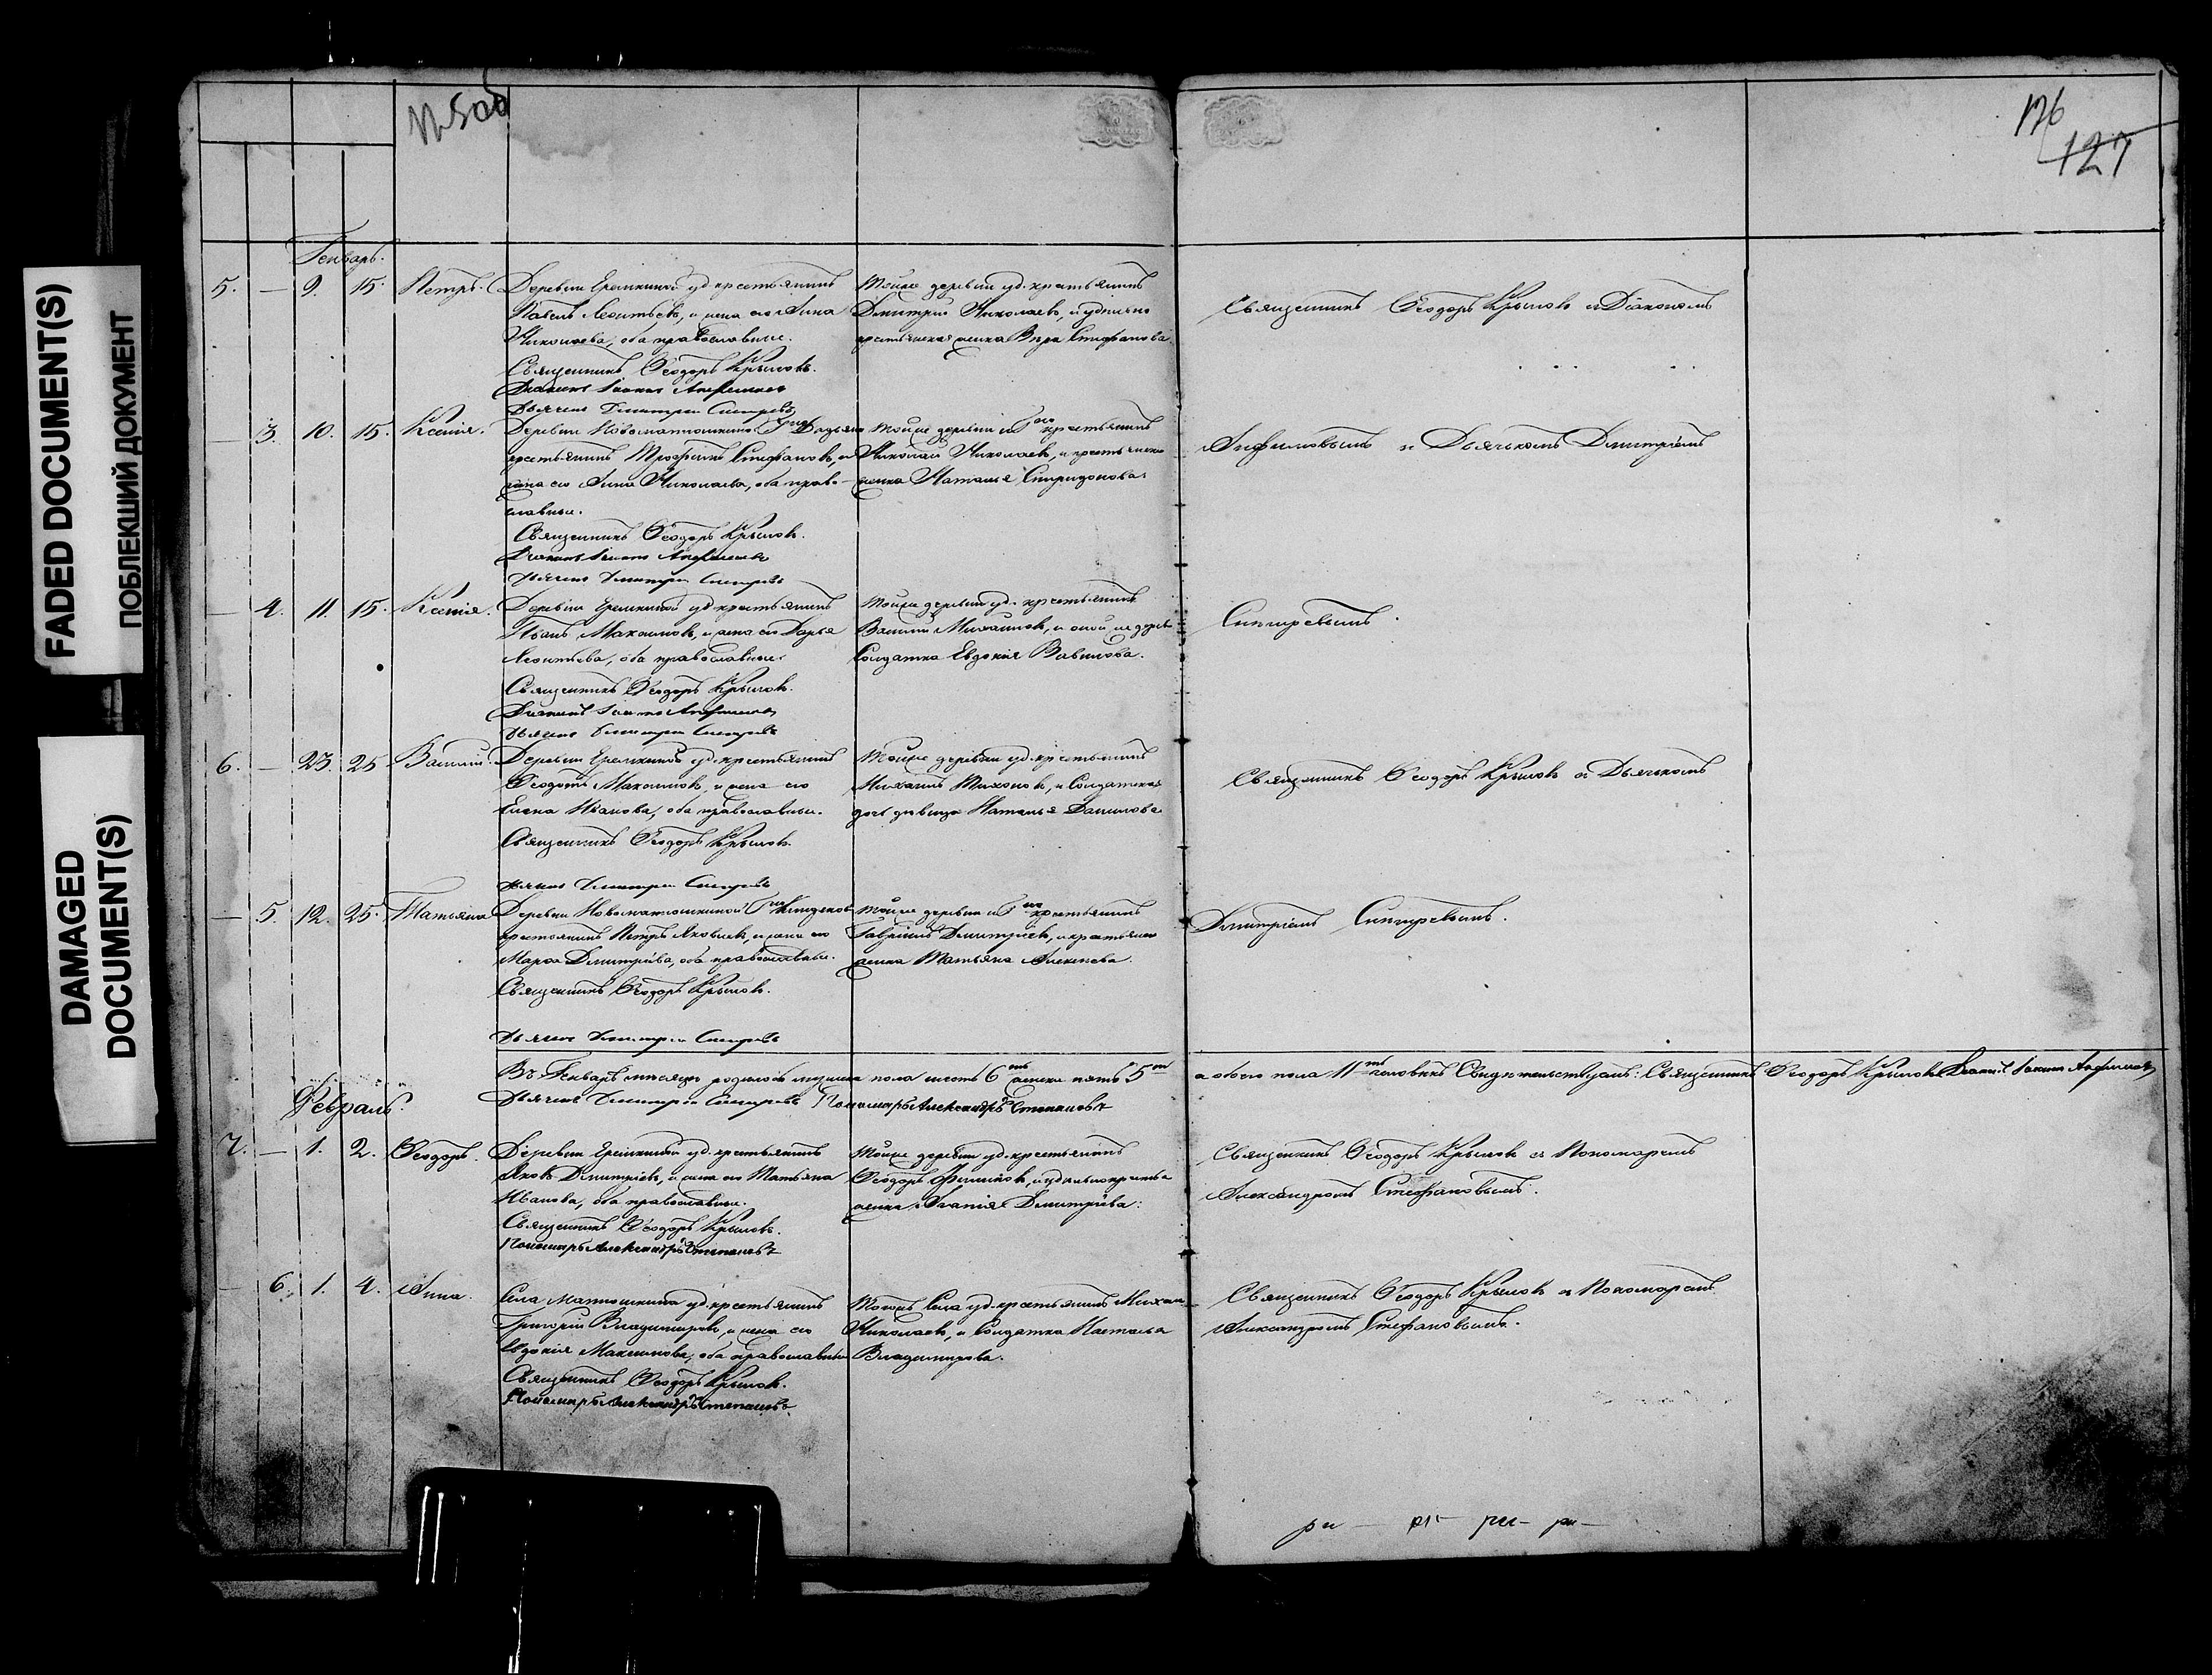 FADED DOCUMENT(S)
ПОБЛЕКШИЙ ДОКУМЕНТ
DAMAGED
DOCUMENT(S)
126
127
Генварь.
5. — 9. 15. Петръ. Деревни Еремкиной уд. крестьянинъ
Павелъ Леонтьевъ, и жена его Анна
Николаева, оба православные.
Священникъ Ѳеодоръ Крыловъ.
Тойже деревни уд. крестьянинъ
Дмитрій Николаевъ, и удѣльно
крестьянская женка Вѣра Стефанова.
Священникъ Ѳеодоръ Крыловъ съ Діакономъ
— 3. 10. 15. Ксенія. Деревни Новоматюшкиной
крестьянинъ Трофимъ Стефановъ, и
жена его Анна Николаева, оба право-
славные.
Священникъ Ѳеодоръ Крыловъ.
Тойже деревни и Гна крестьянинъ
Николай Николаевъ, и крестьянская
женка Наталья Спиридонова.
Анфиловымъ и Дьячкомъ Дмитріемъ
— 4. 11. 15. Ксенія. Деревни Еремкиной уд. крестьянинъ
Иванъ Максимовъ, и жена его Дарья
Леонтьева, оба православные.
Священникъ Ѳеодоръ Крыловъ.
Тойже деревни уд. крестьянинъ
Василій Михайловъ, и оной же дерев.
Солдатка Евдокія Вавилова.
6. — 23. 25. Василій. Деревни Еремкиной уд. крестьянинъ
Ѳеодотъ Максимовъ, и жена его
Елена Иванова, оба православные.
Священникъ Ѳеодоръ Крыловъ.
Тойже деревни уд. крестьянинъ
Михаилъ Тихоновъ, и Солдатская
дочь дѣвица Наталья Данилова
Священникъ Ѳеодоръ Крыловъ съ Дьячкомъ
— 5. 12. 25. Татьяна. Деревни Новоматюшкиной
крестьянинъ Петръ Яковлевъ, и жена его
Марѳа Дмитріева, оба православные.
Священникъ Ѳеодоръ Крыловъ.
Тойже деревни и Гна крестьянинъ
Гавріилъ Дмитріевъ, и крестьянская
женка Татьяна Алексѣева.
Дмитріемъ
Въ Генварѣ мѣсяцѣ родилось мужеска пола шесть 6ть женска пять 5ть
а обоего пола 11ть человѣкъ Свидѣтельствуемъ: Священникъ Ѳеодоръ Крыловъ
Пономарь Александръ Степановъ
Февраль.
7. — 1. 2. Ѳеодоръ. Деревни Еремкиной уд. крестьянинъ
Яковъ Дмитріевъ, и жена его Татьяна
Иванова, оба православные.
Священникъ Ѳеодоръ Крыловъ.
Пономарь Александръ Степановъ
Тойже деревни уд. крестьянинъ
Ѳеодоръ Филиповъ, и удѣльнокрестьян.
женка Агапія Дмитріева.
Священникъ Ѳеодоръ Крыловъ съ Пономаремъ
Александромъ Стефановымъ.
— 6. 1. 4. Анна. Села Матюшкина уд. крестьянинъ
Григорій Владимировъ, и жена его
Евдокія Максимова, оба православные
Священникъ Ѳеодоръ Крыловъ.
Пономарь Александръ Степановъ.
Тогожъ Села уд. крестьянинъ Михаилъ
Николаевъ, и Солдатка Наталья
Владимирова.
Священникъ Ѳеодоръ Крыловъ съ Пономаремъ
Александромъ Стефановымъ.